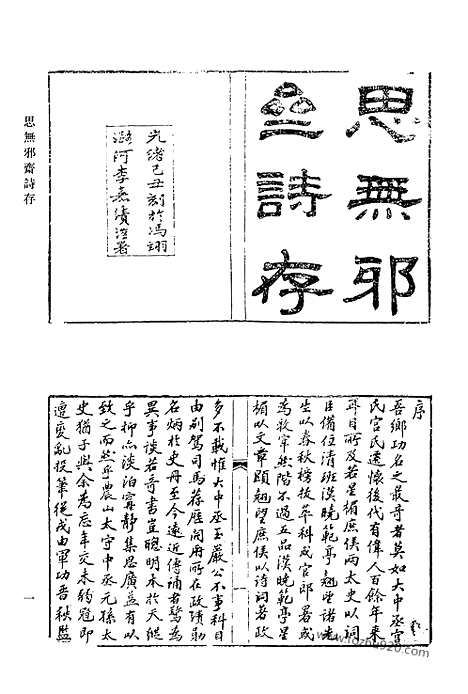 思無邪
亝詩存
光緒己丑刻於馮翊
潞河李嘉績署
思無邪齋詩存
序
吾鄉功名之最奇者莫如大中丞官
民宮氏遺懷後代有偉人百餘年來
耳目所及若星楣庶侯兩太史以詞
臣備位清班漢曉範亭翹望諸先
生以春秋榜拔萃科成官郎署或
為牧宰然階不過五品漢曉範亭星
楣以文章顯翹望庶侯以詩詞著政
多不載惟大中丞玉嚴公不事科目
由别駕司馬荐歷開府所在政績勛
名炳於史冊至今遠近傳誦者驚為
異事談若奇書豈聰明本於天縱
乎抑亦淡泊寧靜集思廣益有以
致之而然乎農山太守中丞元孫太
史猶子與余為忘年交未弱冠即
遭變亂投筆從戎由軍功晋秩監
一